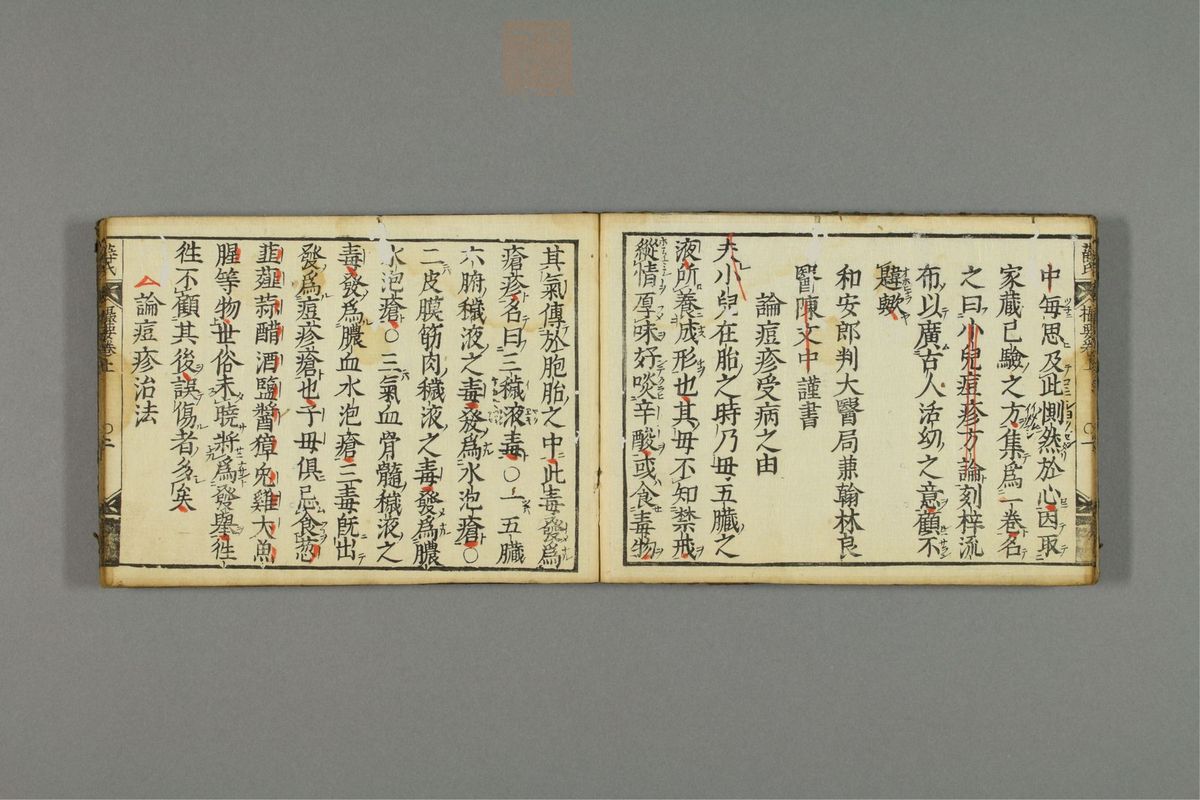 中每思及此惻然於心因取
家蔵已驗之方集爲一卷名
之曰小兒痘疹方論刻梓流
布以廣古人活幼之意顧不
韙歟
和安郎判大醫局兼翰林良
醫陳文中謹書
論痘疹受病之由
夫小兒在胎之時乃毋五臓之
液所養成形也其毋不知禁戒
縱情厚味好啖辛酸或食毒物
其氣傳於胞胎之中此毒發爲
瘡疹名曰三穢液毒〇一五臓
六腑穢液之毒發爲水泡瘡〇
二皮膜筋肉穢液之毒發爲膿
水泡瘡〇三氣血骨髓穢液之
毒發爲膿血水泡瘡三毒旣出
發爲痘疹瘡也子毋俱忌食葱
韮薤蒜醋酒鹽醬獐兎雞犬魚
腥等物世俗未曉將爲發舉徃
徃不顧其後誤傷者多矣
論痘疹治法